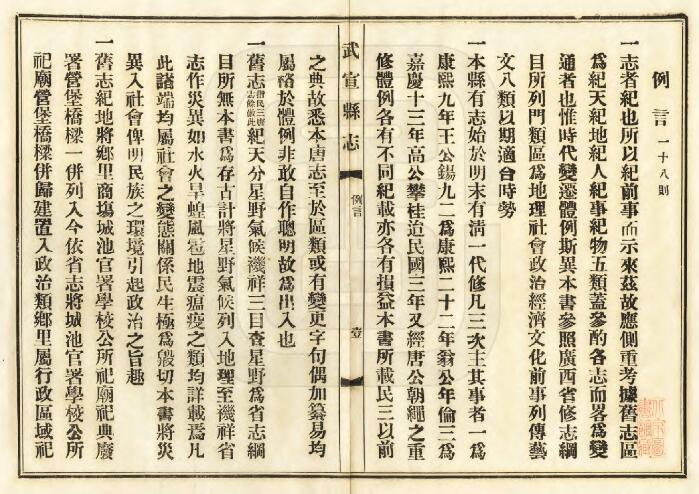 例言 一十八則
一志者紀也所以紀前事而示來茲故應側重考據舊志區
為紀天紀地紀人紀事紀物五類蓋參酌各志而畧為變
通者也惟時代變遷體例斯異本書參照廣西省修志綱
目所列門類區為地理社會政治經濟文化前事列傳藝
文八類以期適合時勢
一本縣有志始於明末有清一代修凡三次主其事者一為
康熙九年王公錫九二為康熙二十二年翁公年倫三為
嘉慶十三年高公攀桂迨民國三年又經唐公朝繩之重
修體例各有不同紀載亦各有損益本書所載民三以前
武宣縣志
例言
壹
之典故悉本唐志至於區類或有變更字句偶加纂易均
屬格於體例非敢自作聰明故為出入也
一舊志指民三唐志餘倣此紀天分星野氣候禨祥三目查星野為省志綱
目所無本書為存古計將星野氣候列入地理至禨祥省
志作災異如水火旱蝗風雹地震瘟疫之類均詳載焉凡
此諸端均屬社會之變態關係民生極為毀切本書將災
異入社會俾明民族之環境引起政治之旨趣
一舊志紀地將鄉里商塲城池官署學校公所祀廟祀典廢
署營堡橋樑一併列入今依省志將城池官署學校公所
祀廟營堡橋樑併歸建置入政治類鄉里屬行政區域祀